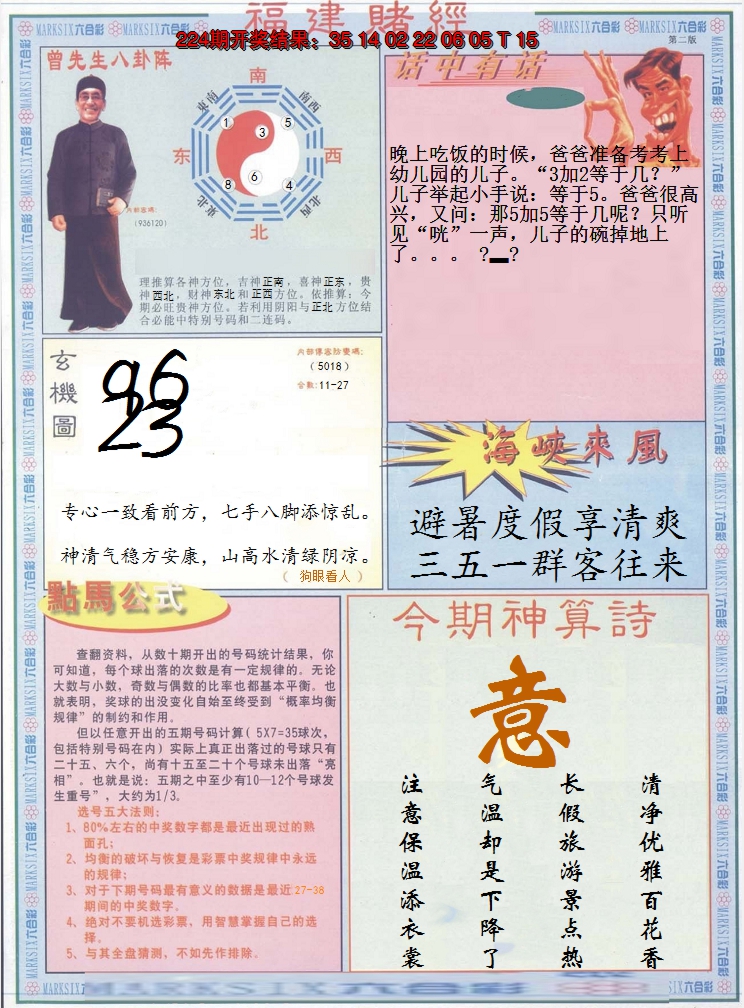 福建賭經
224期开奖结果：35 14 02 22 06 05 T 15
第二版
MARKSIX六合彩
曾先生八卦阵
南
東南
南西
1
3
5
东
西
8
6
4
東北
北西
北
内部密碼:
(936120)
理推算各神方位，吉神正南，喜神正东，贵
神西北，财神东北和正西方位。依推算：今
期必旺贵神方位。若利用阴阳与正北方位结
合必能中特别号码和二连码。
话中有话
晚上吃饭的时候，爸爸准备考考上
幼儿园的儿子。“3加2等于几？”
儿子举起小手说：等于5。爸爸很高
兴，又问：那5加5等于几呢？只听
见“咣”一声，儿子的碗掉地上
了。。。 ?▬?
玄機圖
96
23
（5018）
合数:11-27
专心一致看前方，七手八脚添惊乱。
神清气稳方安康，山高水清绿阴凉。
（ 狗眼看人 ）
海峡來風
避暑度假享清爽
三五一群客往来
點馬公式
查翻资料，从数十期开出的号码统计结果，你
可知道，每个球出落的次数是有一定规律的。无论
大数与小数，奇数与偶数的比率也都基本平衡。也
就表明，奖球的出没变化自始至终受到“概率均衡
规律”的制约和作用。
但以任意开出的五期号码计算( 5X7=35球次，
包括特别号码在内) 实际上真正出落过的号球只有
二十五、六个，尚有十五至二十个号球未出落“亮
相”。也就是说：五期之中至少有10—12个号球发
生重号”，大约为1/3。
选号五大法则：
1、80%左右的中奖数字都是最近出现过的熟
面孔；
2、均衡的破坏与恢复是彩票中奖规律中永远
的规律；
3、对于下期号码最有意义的数据是最近27-38
期间的中奖数字。
4、绝对不要机选彩票，用智慧掌握自己的选
择。
5、与其全盘猜测，不如先作排除。
今期神算詩
意
清净优雅百花香
长假旅游景点热
气温却是下降了
注意保温添衣裳